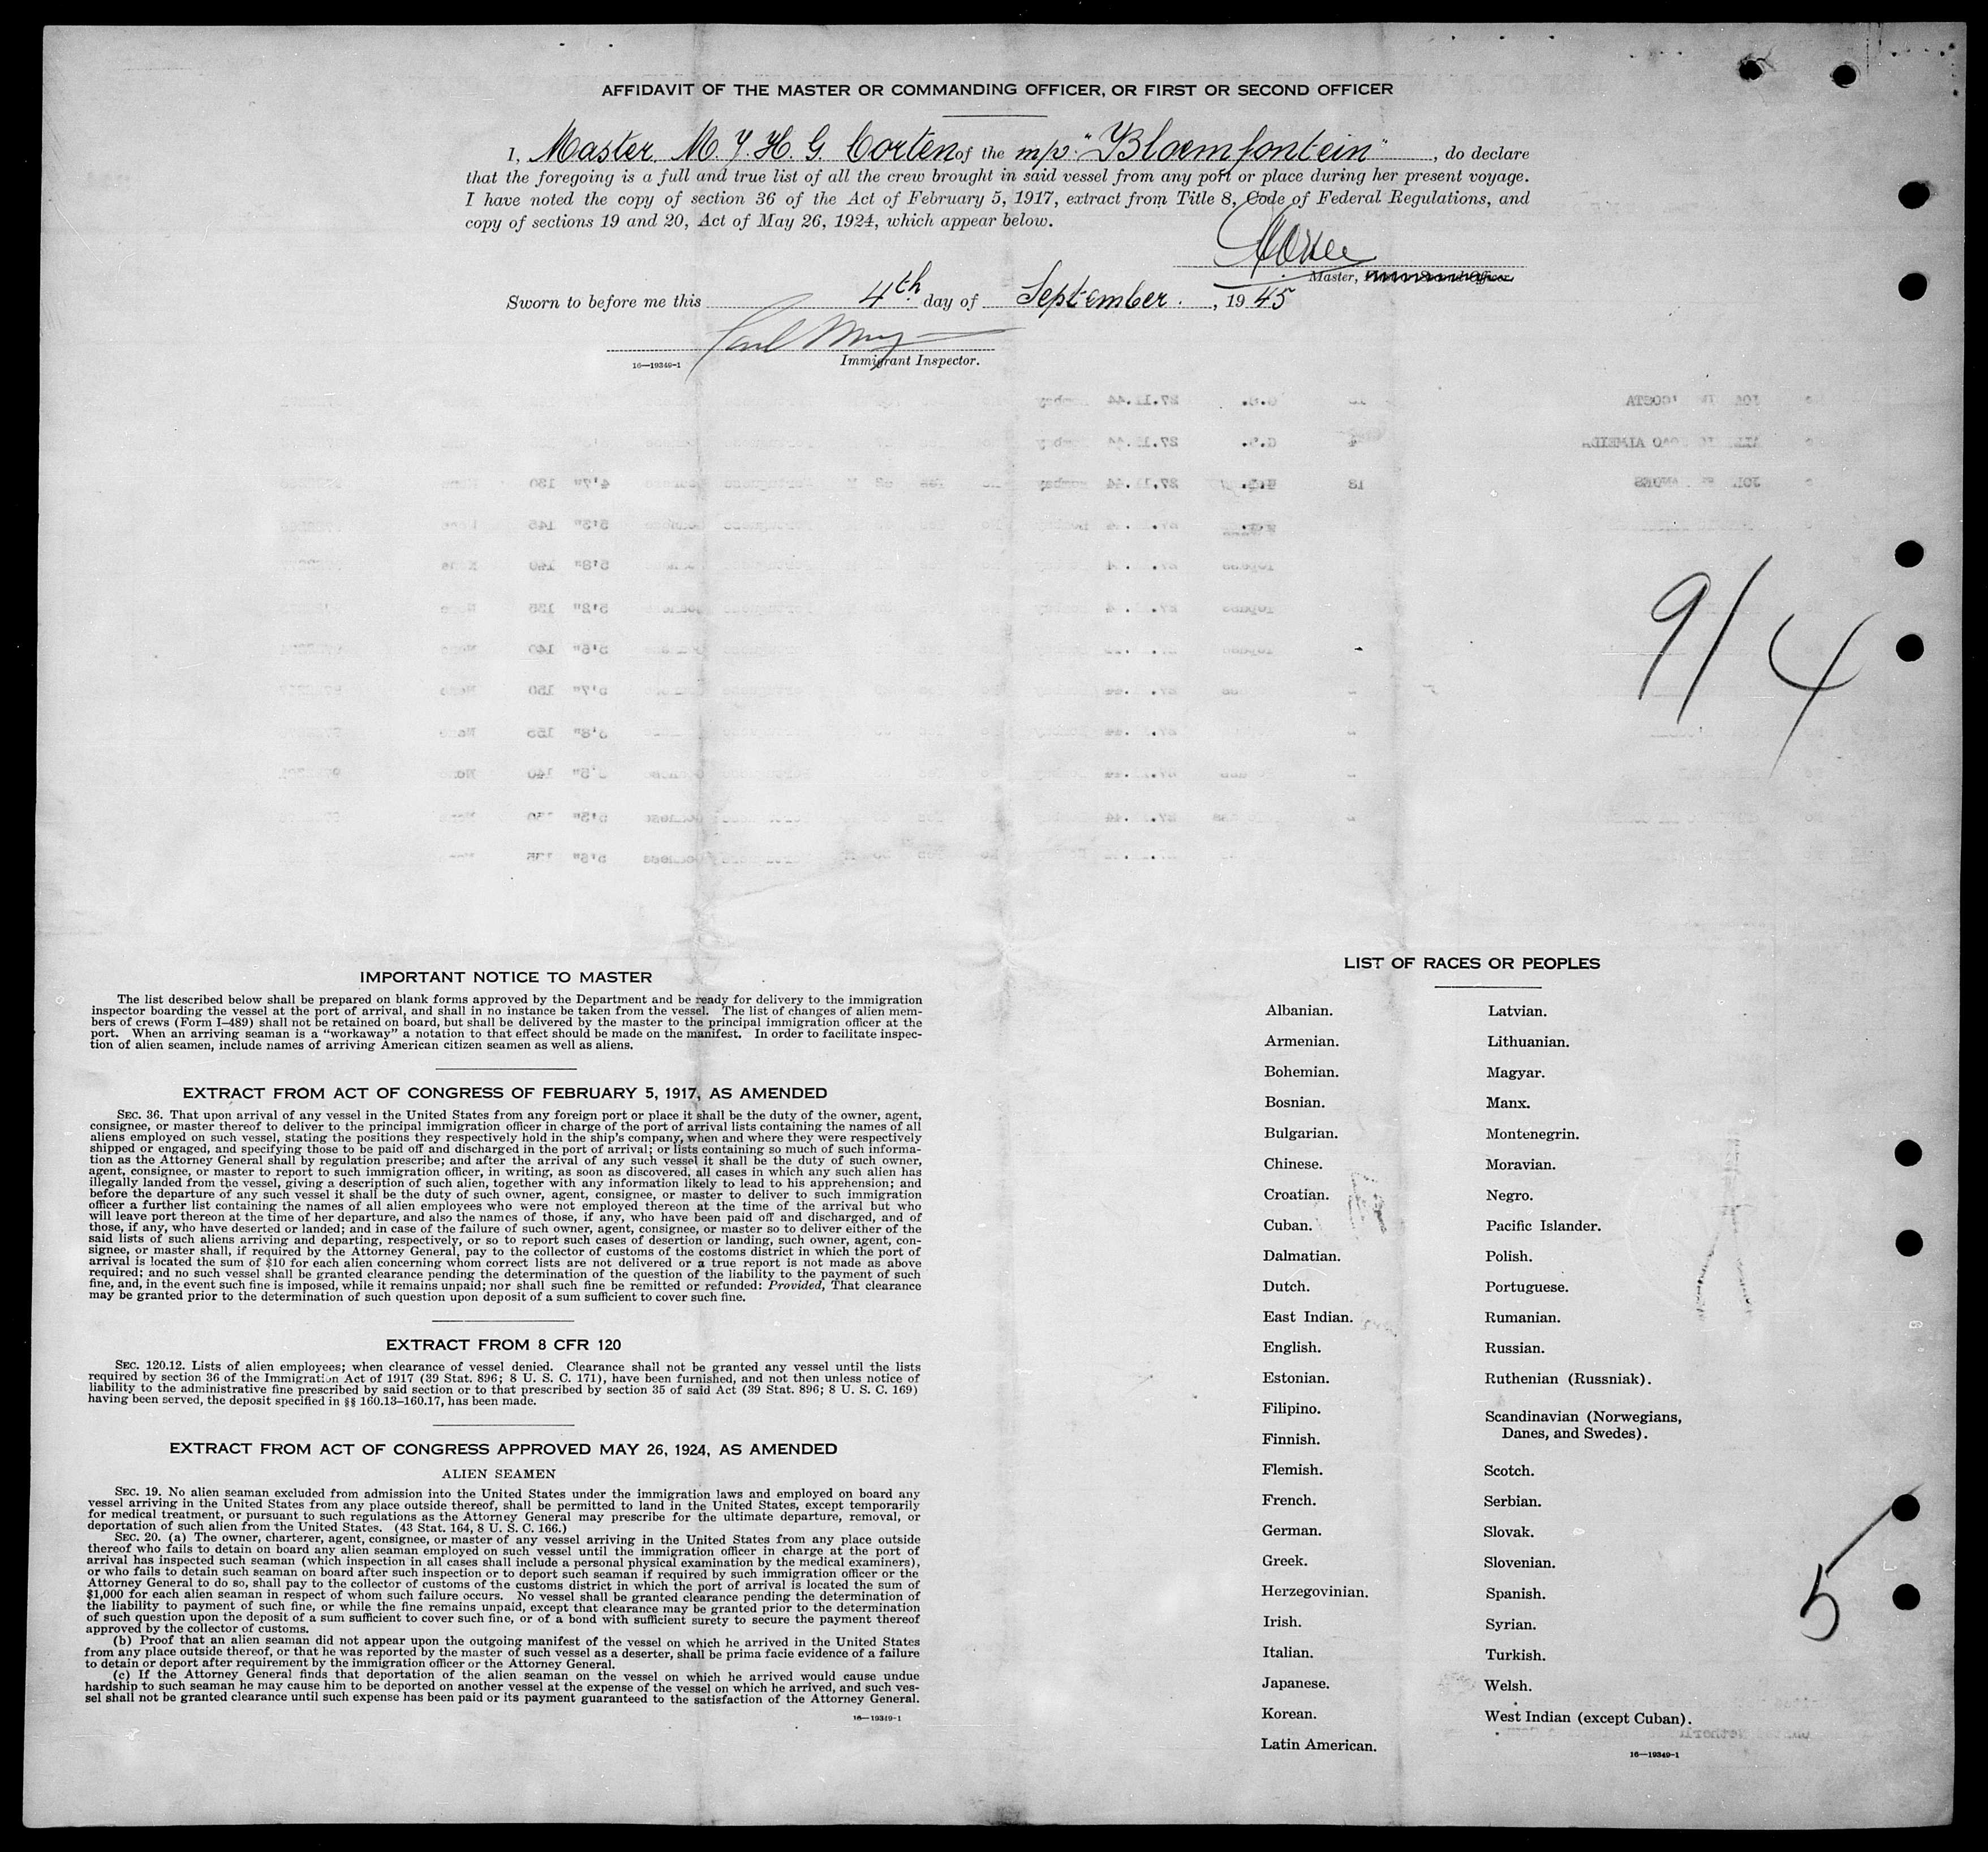 AFFIDAVIT OF THE MASTER OR COMMANDING OFFICER, OR FIRST OR SECOND OFFICER
I, Master M. Y. H. G. Corten of the m/v. "Bloemfontein", do declare
that the foregoing is a full and true list of all the crew brought in said vessel from any port or place during her present voyage.
I have noted the copy of section 36 of the Act of February 5, 1917, extract from Title 8, Code of Federal Regulations, and
copy of sections 19 and 20, Act of May 26, 1924, which appear below.
Master,
Sworn to before me this 4th day of September, 1945
Immigrant Inspector.
16—19349-1
9/4
IMPORTANT NOTICE TO MASTER
The list described below shall be prepared on blank forms approved by the Department and be ready for delivery to the immigration
inspector boarding the vessel at the port of arrival, and shall in no instance be taken from the vessel. The list of changes of alien mem-
bers of crews (Form I–489) shall not be retained on board, but shall be delivered by the master to the principal immigration officer at the
port. When an arriving seaman is a "workaway" a notation to that effect should be made on the manifest. In order to facilitate inspec-
tion of alien seamen, include names of arriving American citizen seamen as well as aliens.
EXTRACT FROM ACT OF CONGRESS OF FEBRUARY 5, 1917, AS AMENDED
SEC. 36. That upon arrival of any vessel in the United States from any foreign port or place it shall be the duty of the owner, agent,
consignee, or master thereof to deliver to the principal immigration officer in charge of the port of arrival lists containing the names of all
aliens employed on such vessel, stating the positions they respectively hold in the ship's company, when and where they were respectively
shipped or engaged, and specifying those to be paid off and discharged in the port of arrival; or lists containing so much of such informa-
tion as the Attorney General shall by regulation prescribe; and after the arrival of any such vessel it shall be the duty of such owner,
agent, consignee, or master to report to such immigration officer, in writing, as soon as discovered, all cases in which any such alien has
illegally landed from the vessel, giving a description of such alien, together with any information likely to lead to his apprehension; and
before the departure of any such vessel it shall be the duty of such owner, agent, consignee, or master to deliver to such immigration
officer a further list containing the names of all alien employees who were not employed thereon at the time of the arrival but who
will leave port thereon at the time of her departure, and also the names of those, if any, who have been paid off and discharged, and of
those, if any, who have deserted or landed; and in case of the failure of such owner, agent, consignee, or master so to deliver either of the
said lists of such aliens arriving and departing, respectively, or so to report such cases of desertion or landing, such owner, agent, con-
signee, or master shall, if required by the Attorney General, pay to the collector of customs of the costoms district in which the port of
arrival is located the sum of $10 for each alien concerning whom correct lists are not delivered or a true report is not made as above
required; and no such vessel shall be granted clearance pending the determination of the question of the liability to the payment of such
fine, and, in the event such fine is imposed, while it remains unpaid; nor shall such fine be remitted or refunded: Provided, That clearance
may be granted prior to the determination of such question upon deposit of a sum sufficient to cover such fine.
EXTRACT FROM 8 CFR 120
SEC. 120.12. Lists of alien employees; when clearance of vessel denied. Clearance shall not be granted any vessel until the lists
required by section 36 of the Immigration Act of 1917 (39 Stat. 896; 8 U. S. C. 171), have been furnished, and not then unless notice of
liability to the administrative fine prescribed by said section or to that prescribed by section 35 of said Act (39 Stat. 896; 8 U. S. C. 169)
having been served, the deposit specified in §§ 160.13–160.17, has been made.
EXTRACT FROM ACT OF CONGRESS APPROVED MAY 26, 1924, AS AMENDED
ALIEN SEAMEN
SEC. 19. No alien seaman excluded from admission into the United States under the immigration laws and employed on board any
vessel arriving in the United States from any place outside thereof, shall be permitted to land in the United States, except temporarily
for medical treatment, or pursuant to such regulations as the Attorney General may prescribe for the ultimate departure, removal, or
deportation of such alien from the United States. (43 Stat. 164, 8 U. S. C. 166.)
SEC. 20. (a) The owner, charterer, agent, consignee, or master of any vessel arriving in the United States from any place outside
thereof who fails to detain on board any alien seaman employed on such vessel until the immigration officer in charge at the port of
arrival has inspected such seaman (which inspection in all cases shall include a personal physical examination by the medical examiners),
or who fails to detain such seaman on board after such inspection or to deport such seaman if required by such immigration officer or the
Attorney General to do so, shall pay to the collector of customs of the customs district in which the port of arrival is located the sum of
$1,000 for each alien seaman in respect of whom such failure occurs. No vessel shall be granted clearance pending the determination of
the liability to payment of such fine, or while the fine remains unpaid, except that clearance may be granted prior to the determination
of such question upon the deposit of a sum sufficient to cover such fine, or of a bond with sufficient surety to secure the payment thereof
approved by the collector of customs.
(b) Proof that an alien seaman did not appear upon the outgoing manifest of the vessel on which he arrived in the United States
from any place outside thereof, or that he was reported by the master of such vessel as a deserter, shall be prima facie evidence of a failure
to detain or deport after requirement by the immigration officer or the Attorney General.
(c) If the Attorney General finds that deportation of the alien seaman on the vessel on which he arrived would cause undue
hardship to such seaman he may cause him to be deported on another vessel at the expense of the vessel on which he arrived, and such ves-
sel shall not be granted clearance until such expense has been paid or its payment guaranteed to the satisfaction of the Attorney General.
16—19349-1
LIST OF RACES OR PEOPLES
Albanian.
Armenian.
Bohemian.
Bosnian.
Bulgarian.
Chinese.
Croatian.
Cuban.
Dalmatian.
Dutch.
East Indian.
English.
Estonian.
Filipino.
Finnish.
Flemish.
French.
German.
Greek.
Herzegovinian.
Irish.
Italian.
Japanese.
Korean.
Latin American.
Latvian.
Lithuanian.
Magyar.
Manx.
Montenegrin.
Moravian.
Negro.
Pacific Islander.
Polish.
Portuguese.
Rumanian.
Russian.
Ruthenian (Russniak).
Scandinavian (Norwegians,
Danes, and Swedes).
Scotch.
Serbian.
Slovak.
Slovenian.
Spanish.
Syrian.
Turkish.
Welsh.
West Indian (except Cuban).
16—19349-1
5